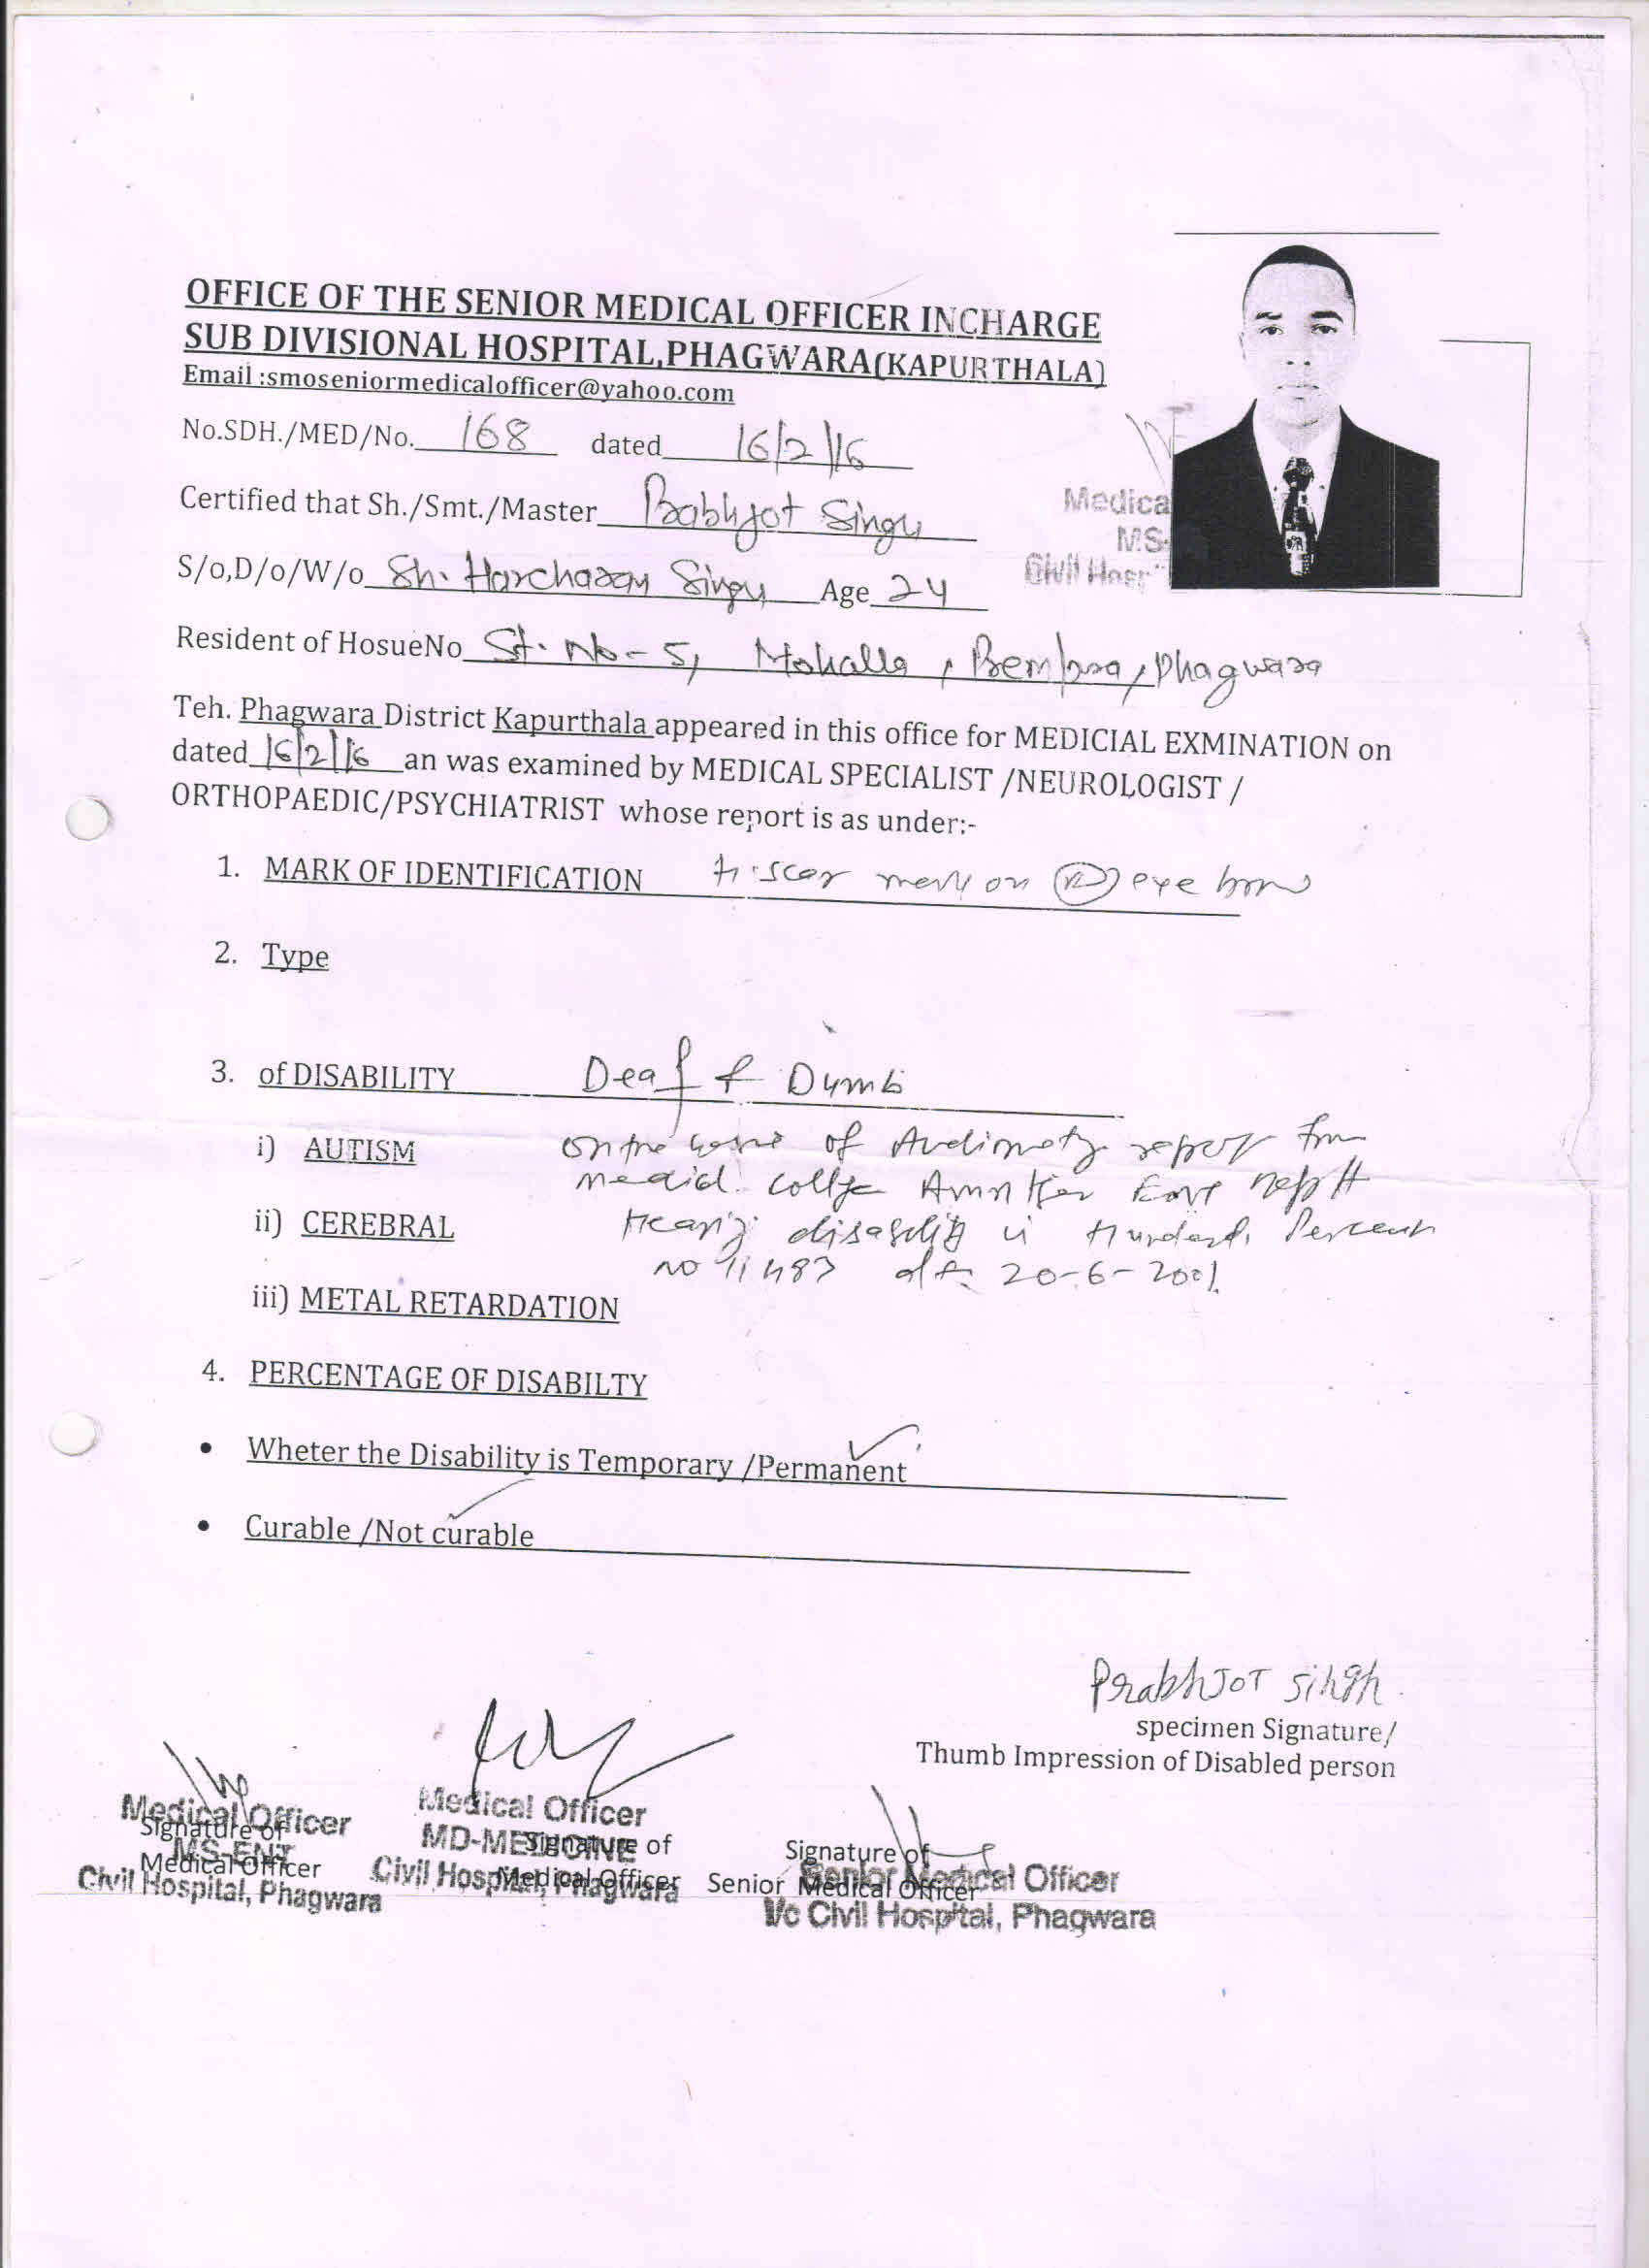 OFFICE OF THE SENIOR MEDICAL OFFICER INCHARGE
SUB DIVISIONAL HOSPITAL,PHAGWARA(KAPURTHALA)
Email :smoseniormedicalofficer@yahoo.com
No.SDH./MED/No. 168 dated 16/2/16
Certified that Sh./Smt./Master Singh
S/o,D/o/W/o Sh. Singh Age 24
Medica
MS-
Civil Hosp
Resident of HosueNo St. No-5, Mohalla, Phagwara
Teh. Phagwara District Kapurthala appeared in this office for MEDICIAL EXMINATION on
dated 16/2/16 an was examined by MEDICAL SPECIALIST /NEUROLOGIST /
ORTHOPAEDIC/PSYCHIATRIST whose report is as under:-
1. MARK OF IDENTIFICATION scar on (R) eye
2. Type
3. of DISABILITY Deaf & Dumb
i) AUTISM of report from
ii) CEREBRAL
disability is Percent
20-6-2001
iii) METAL RETARDATION
4. PERCENTAGE OF DISABILTY
• Wheter the Disability is Temporary /Permanent
• Curable /Not curable
Prabhjot Singh
specimen Signature/
Thumb Impression of Disabled person
Medical Officer
MS-ENT
Civil Hospital, Phagwara
Signature of
Medical Officer
Medical Officer
MD-MEDICINE
Civil Hospital, Phagwara
Signature of
Medical Officer
Signature of
Senior Medical Officer
Senior Medical Officer
I/c Civil Hospital, Phagwara